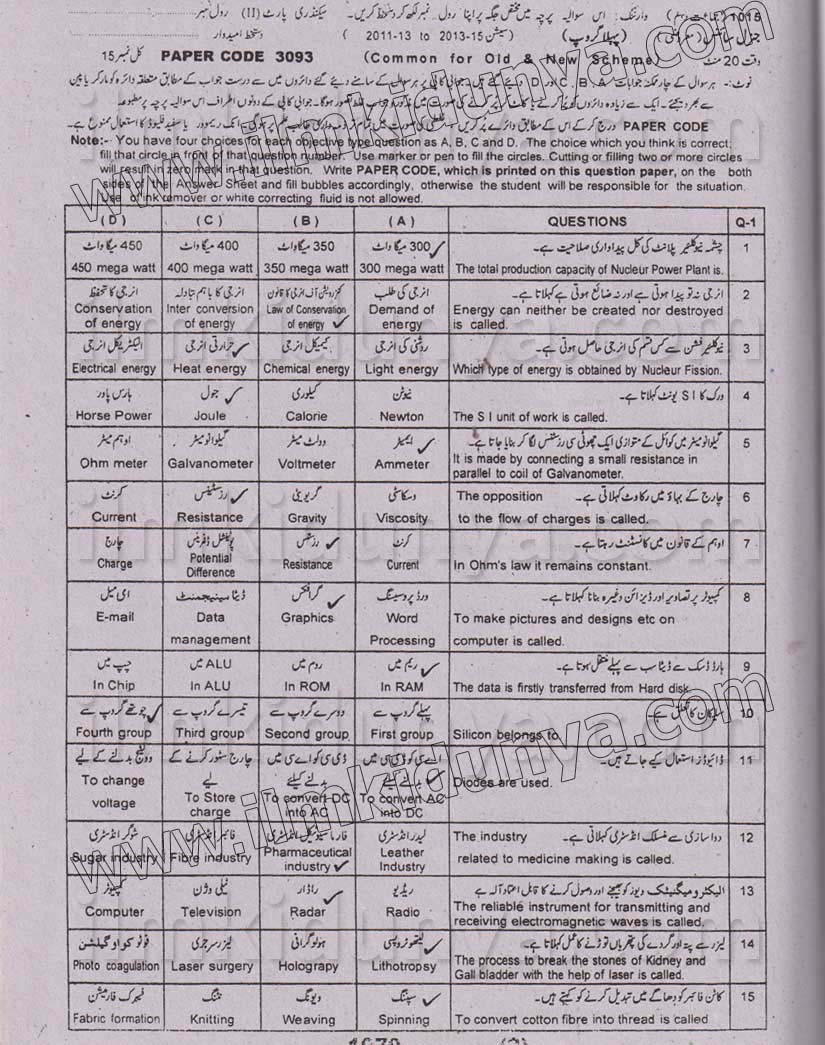 1015 (جماعت دہم) وارننگ: اس سوالیہ پرچہ میں مختص جگہ پر اپنا رول نمبر لکھ کر دستخط کریں۔ سیکنڈری پارٹ (II) رول نمبر
جنرل سائنس (معروضی) (پہلا گروپ) (سیشن 15-2013 to 13-2011) دستخط امیدوار
وقت 20 منٹ (Common for Old & New Scheme) PAPER CODE 3093 کل نمبر 15
نوٹ:- ہر سوال کے چار ممکنہ جوابات A، B، C اور D دیئے گئے ہیں۔ جوابی کاپی پر ہر سوال کے سامنے دیئے گئے دائروں میں سے درست جواب کے مطابق متعلقہ دائرہ کو مارکر یا پین
سے بھر دیجئے۔ ایک سے زیادہ دائروں کو پُر کرنے یا کاٹ کر پُر کرنے کی صورت میں مذکورہ جواب غلط تصور ہوگا۔ جوابی کاپی کے دونوں اطراف اس سوالیہ پرچہ پر مطبوعہ
PAPER CODE درج کر کے اس کے مطابق دائرے پُر کریں، غلطی کی صورت میں تمام تر ذمہ داری طالب علم پر ہوگی۔ انک ریموور یا سفید فلیوڈ کا استعمال ممنوع ہے۔
Note:- You have four choices for each objective type question as A, B, C and D. The choice which you think is correct;
fill that circle in front of that question number. Use marker or pen to fill the circles. Cutting or filling two or more circles
will result in zero mark in that question. Write PAPER CODE, which is printed on this question paper, on the both
sides of the Answer Sheet and fill bubbles accordingly, otherwise the student will be responsible for the situation.
Use of ink remover or white correcting fluid is not allowed.
(D) (C) (B) (A) QUESTIONS Q-1
450 میگاواٹ 400 میگاواٹ 350 میگاواٹ 300 میگاواٹ چشمہ نیوکلئیر پلانٹ کی کل پیداواری صلاحیت ہے۔ 1
450 mega watt 400 mega watt 350 mega watt 300 mega watt The total production capacity of Nucleur Power Plant is.
انرجی کا تحفظ انرجی کا باہم تبادلہ کنزرویشن آف انرجی کا قانون انرجی کی طلب انرجی نہ تو پیدا ہوتی ہے اور نہ ضائع ہوتی ہے کہلاتا ہے۔ 2
Conservation Inter conversion Law of Conservation Demand of Energy can neither be created nor destroyed
of energy of energy of energy energy is called.
الیکٹریکل انرجی حرارتی انرجی کیمیکل انرجی روشنی کی انرجی نیوکلیئر فشن سے کس قسم کی انرجی حاصل ہوتی ہے۔ 3
Electrical energy Heat energy Chemical energy Light energy Which type of energy is obtained by Nucleur Fission.
ہارس پاور جول کیلوری نیوٹن ورک کا SI یونٹ کہلاتا ہے۔ 4
Horse Power Joule Calorie Newton The S I unit of work is called.
اوہم میٹر گیلوانومیٹر وولٹ میٹر ایمیٹر گیلوانومیٹر میں کوائل کے متوازی ایک چھوٹی سی رزسٹنس لگا کر بنایا جاتا ہے۔ 5
Ohm meter Galvanometer Voltmeter Ammeter It is made by connecting a small resistance in
parallel to coil of Galvanometer.
کرنٹ رزسٹینس گریویٹی وسکاسٹی چارج کے بہاؤ میں رکاوٹ کہلاتی ہے۔ The opposition 6
Current Resistance Gravity Viscosity to the flow of charges is called.
چارج پوٹینشل ڈفرینس رزسٹنس کرنٹ اوہم کے قانون میں کانسٹنٹ رہتا ہے۔ 7
Charge Potential Difference Resistance Current In Ohm's law it remains constant.
ای میل ڈیٹا مینیجمنٹ گرافکس ورڈ پروسیسنگ کمپیوٹر پر تصاویر اور ڈیزائن وغیرہ بنانا کہلاتا ہے۔ 8
E-mail Data Graphics Word To make pictures and designs etc on
management Processing computer is called.
چپ میں ALU میں روم میں ریم میں ہارڈ ڈسک سے ڈیٹا سب سے پہلے منتقل ہوتا ہے۔ 9
In Chip In ALU In ROM In RAM The data is firstly transferred from Hard disk
چوتھے گروپ سے تیسرے گروپ سے دوسرے گروپ سے پہلے گروپ سے سلیکان کا تعلق ہے۔ 10
Fourth group Third group Second group First group Silicon belongs to
وولٹیج بدلنے کے لیے چارج سٹور کرنے کے لیے ڈی سی کو اے سی میں بدلنے کیلئے اے سی کو ڈی سی میں بدلنے کیلئے ڈائیوڈز استعمال کیے جاتے ہیں۔ 11
To change To Store To convert DC To convert AC Diodes are used.
voltage charge into AC into DC
شوگر انڈسٹری فائبر انڈسٹری فارماسیوٹیکل انڈسٹری لیدر انڈسٹری دوا سازی سے منسلک انڈسٹری کہلاتی ہے۔ The industry 12
Sugar industry Fibre industry Pharmaceutical Leather related to medicine making is called.
industry Industry
کمپیوٹر ٹیلی وژن راڈار ریڈیو الیکٹرومیگنیٹک ویوز کو بھیجنے اور وصول کرنے کا قابل اعتماد آلہ ہے 13
Computer Television Radar Radio The reliable instrument for transmitting and
receiving electromagnetic waves is called.
فوٹو کواوگیلشن لیزر سرجری ہولوگرافی لیتھوٹروپسی لیزر سے پتہ اور گردے کی پتھریاں توڑنے کا عمل کہلاتا ہے۔ 14
Photo coagulation Laser surgery Holograpy Lithotropsy The process to break the stones of Kidney and
Gall bladder with the help of laser is called.
فیبرک فارمیشن نٹنگ ویونگ سپننگ کاٹن فائبر کو دھاگے میں تبدیل کرنے کو کہتے ہیں۔ 15
Fabric formation Knitting Weaving Spinning To convert cotton fibre into thread is called
www.ilmkidunya.com
www.ilmkidunya.com
ilmkidunya.com